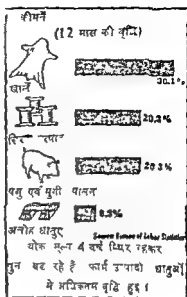 कीमतें
(12 मास की वृद्धि)
30.1%
खानें
20.3%
20.3%
पशु एवं मुर्गी पालन
8.5%
अलौह धातुएं
Source Bureau of Labor Statistics
थोक मूल्य 4 वर्ष स्थिर रहकर
पुन बढ़ रहे हैं फार्म उत्पादों धातुओं
में अधिकतम वृद्धि हुई।